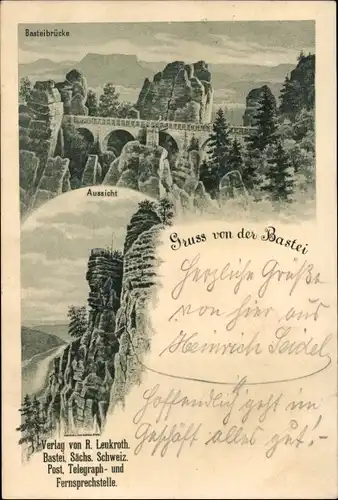 Basteibrücke
Aussicht
Gruss von der Bastei
Herzliche Grüße
von hier aus
Heinrich Seidel
Hoffendlich geht im
Geschäft alles gut!
Verlag von R. Leukroth.
Bastei, Sächs. Schweiz.
Post, Telegraph- und
Fernsprechstelle.